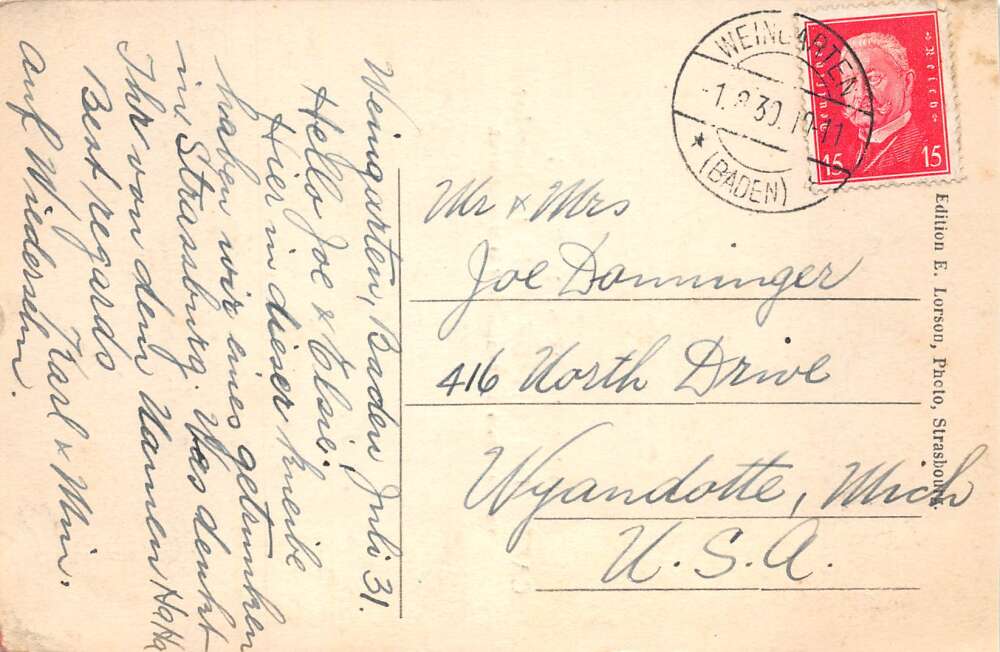 Weingarten, Baden Juli 31.
Hello Joe & Elsie;
Hier in dieser Kneibe
haben wir eines getrunken
in Strassburg. Was denkt
Ihr von dem Namen Ha Ha
Best regards
Karl & Min.
auf Wiedersehn.
WEINGARTEN
-1.8.30.19-11
* (BADEN)
Deutsches Reich
15 15
Mr & Mrs
Joe Donninger
416 North Drive
Wyandotte, Mich
U.S.A.
Edition E. Lorson, Photo, Strasbourg.